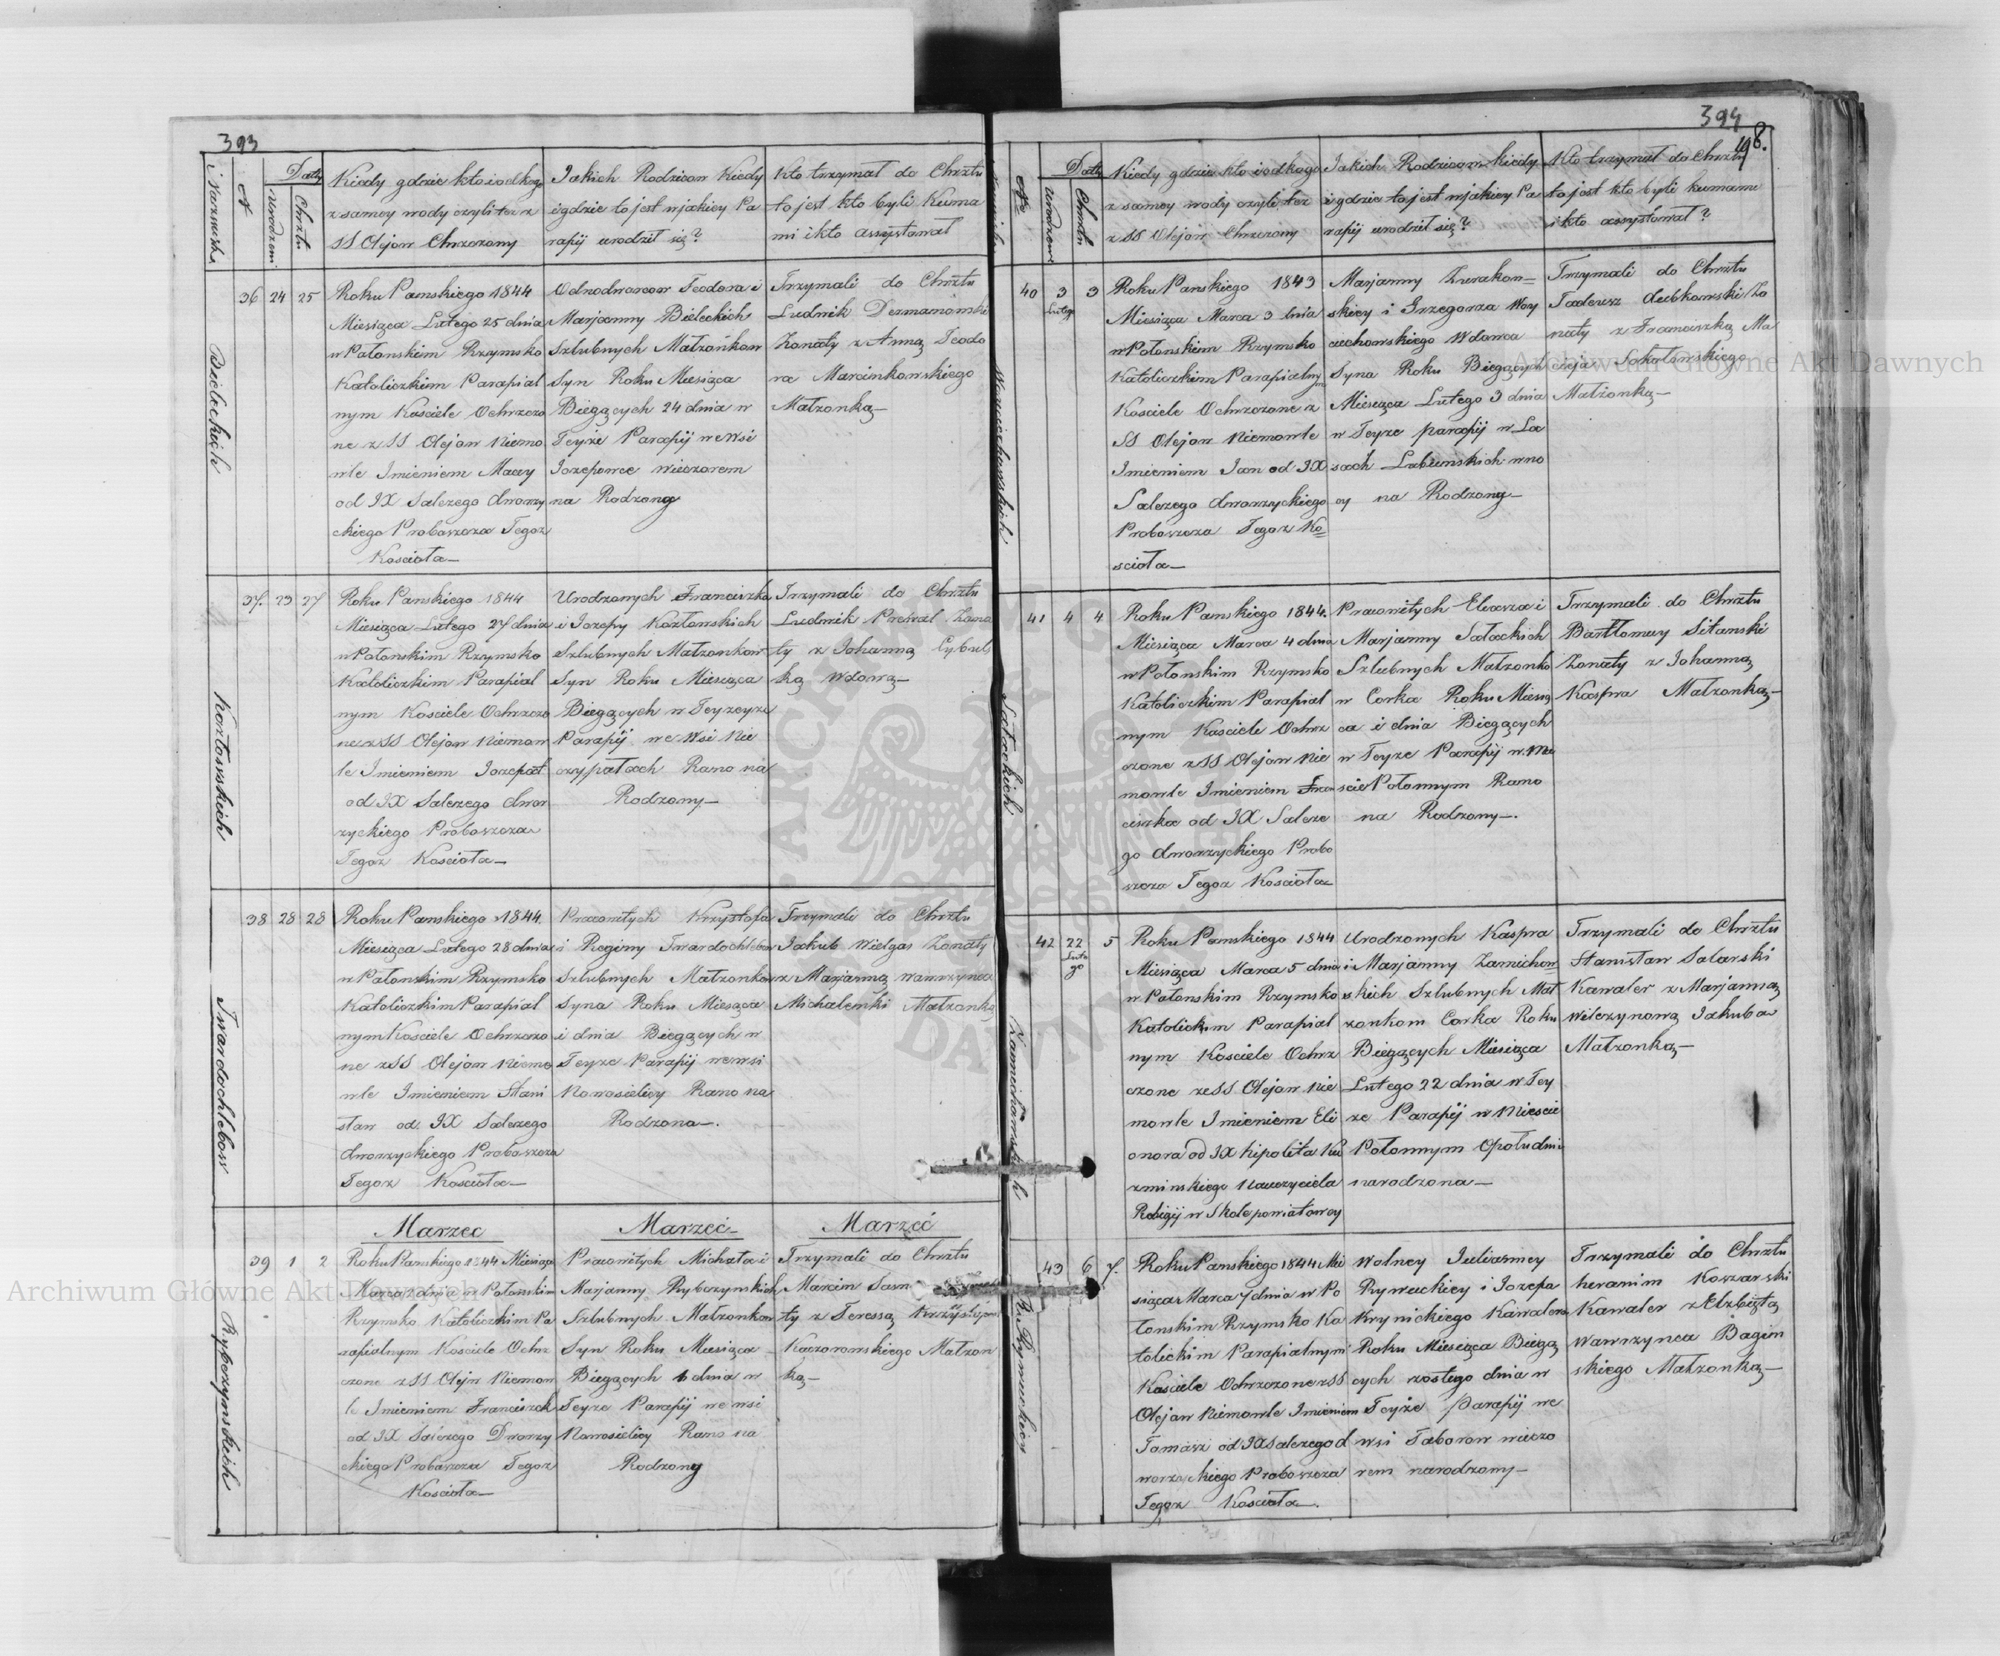 393
Nazwiska
№
Daty
Urodzeni
Chrztu
Kiedy gdzie kto i od kogo
z samey wody czyli też z
SS Olejow Chrzczony
Jakich Rodzicow Kiedy
i gdzie to jest w jakiey Pa
rafij urodził się?
Kto trzymał do Chrztu
to jest kto byli Kuma
mi i kto assystował
Bieleckich
36 24 25
Roku Panskiego 1844
Miesiąca Lutego 25 dnia
w Połonskim Rzymsko
Katolickim Parafial
nym Kosciele Ochrzczo
ne z SS Olejow Niemo
wle Imieniem Macey
od JX Salezego dworzy
ckiego Proboszcza Tegoz
Koscioła
Odnodworcow Teodora i
Marjanny Bieleckich
Szlubnych Małzonkow
Syn Roku Miesiąca
Biegących 24 dnia w
Teyże Parafij we Wsi
Jozepowce wieczorem
na Rodzony
Trzymali do Chrztu
Ludwik
Zonaty z Anną Teodo
ra Marcinkowskiego
Małzonką
Kozłowskich
37. 23 27
Roku Panskiego 1844
Miesiąca Lutego 27 dnia
w Połonskim Rzymsko
Katoliczkim Parafial
nym Kosciele Ochrzczo
ne z SS Olejow Niemow
le Imieniem Jozefat
od JX Salezego dwor
zyckiego Proboszcza
Tegoz Koscioła
Urodzonych Franciszka
i Jozefy Kozłowskich
Szlubnych Małzonkow
Syn Roku Miesiąca
Biegących w Teyzeyze
Parafij we Wsi Nie
czypałach Rano na
Rodzony
Trzymali do Chrztu
Ludwik Zona
ty z Johanną Cybul
ką Wdową
Twardochlebow
38 28 28
Roku Panskiego 1844.
Miesiąca Lutego 28 dnia
w Połonskim Rzymsko
Katoliczkim Parafial
nym Kosciele Ochrzczo
ne z SS Olejow Niemo
wle Imieniem Stani
sław od JX Salezego
dworzyckiego Proboszcza
Tegoz Koscioła
Pracowitych Krzysztofa
i Reginy Twardochlebow
Szlubnych Małzonkow
Syna Roku Miesiąca
i dnia Biegących w
Teyze Parafij we wsi
Nowosielicy Rano na
Rodzona
Trzymali do Chrztu
Jakub Wielgas Zonaty
z Marjanną Wawrzynca
Michalewski Małzonką
Rybczynskich
39 1 2
Marzec
Roku Panskiego 1844 Miesiąca
Marca 2 dnia w Połonskim
Rzymsko Katoliczkim Pa
rafialnym Kosciele Ochrz
czone z SS Olejow Niemow
le Imieniem Franciszek
od JX Salezego Dworzy
ckiego Proboszcza Tegoz
Koscioła
Marzec
Pracowitych Michała i
Marjanny Rybczynskich
Szlubnych Małzonkow
Syn Roku Miesiąca
Biegących 1 dnia w
Teyze Parafij we wsi
Nowosielicy Rano na
Rodzony
Marzec
Trzymali do Chrztu
Marcin
ty z Teressą
Kaczorowskiego Małzon
ką
394
198.
№
Daty
Urodzeni
Chrztu
Kiedy gdzie kto i od kogo
z samey wody czyli tez
z SS Olejow Chrzczony
Jakich Rodzicow kiedy
i gdzie to jest w jakiey Pa
rafij urodził się?
Kto trzymał do Chrztu
to jest kto byli kumami
i kto assystował?
Woyciechowskich
40 3 3
Lutego
Roku Panskiego 1843
Miesiąca Marca 3 dnia
w Połonskim Rzymsko
Katoliczkim Parafialnym
Kosciele Ochrzczone z
SS Olejow Niemowle
Imieniem Jan od JX
Salezego dworzyckiego
Proboszcza Tegoz Ko=
scioła
Marjanny Zurakow=
skiey i Grzegorza Woy
ciechowskiego Wdowca
Syna Roku Biegących
Miesiąca Lutego 3 dnia
w Teyze parafij w La
sach Labunskich w no
cy na Rodzony
Trzymali do Chrztu
Tadeusz dubkowski Zo
naty z Franciszką Ma
cieja Sokołowskiego
Małzonką
Sałackich
41 4 4
Roku Panskiego 1844.
Miesiąca Marca 4 dnia
w Połonskim Rzymsko
Katoliczkim Parafial
nym Kosciele Ochrz
czone z SS Olejow Nie
mowle Imieniem Fran
ciszka od JX Saleze
go dworzyckiego Probo
szcza Tegoz Koscioła
Pracowitych Eleasza i
Marjanny Sałackich
Szlubnych Małzonko
w Corka Roku Miesią
ca i dnia Biegących
w Teyze Parafij w Mie
scie Połonnym Rano
na Rodzony
Trzymali do Chrztu
Bartłomiey Silanski
Zonaty z Johanną
Kaspra Małzonką
42 22 5
Lute
go
Roku Panskiego 1844
Miesiąca Marca 5 dnia
w Połonskim Rzymsko
Katolickim Parafial
nym Kosciele Ochrz
czone ze SS Olejow Nie
mowle Imieniem Ele
onora od JX Hipolita Ku
zminskiego Nauczyciela
Religij w Skole powiatowey
Urodzonych Kaspra
i Marjanny Zamichow
skich Szlubnych Mał
zonkom Corka Roku
Biegących Miesiąca
Lutego 22 dnia w Tey
ze Parafij w Miescie
Połonnym Opołudniu
narodzona
Trzymali do Chrztu
Stanisław Salarski
Kawaler z Marjanną
Wilczynową Jakuba
Małzonką
43 6 7
Roku Panskiego 1844 Mie
siąca Marca 7 dnia w Po
łonskim Rzymsko Ka
tolickim Parafialnym
Kosciele Ochrzczone z SS
Olejow Niemowle Imieniem
Tomasz od JX Salezego d
worzyckiego Proboszcza
Tegoz Koscioła
Wolney Julianney
Rywuckiey i Jozefa
Krynickiego Kawalera
Roku Miesiąca Biegą
cych szostego dnia w
Teyże Parafij we
wsi Taborow wieczo
rem narodzony
Trzymali do Chrztu
Koszarski
Kawaler z Elzbietą
Wawrzynca Bagin
skiego Małzonką
Archiwum Główne Akt Dawnych
Archiwum Główne Akt Dawnych